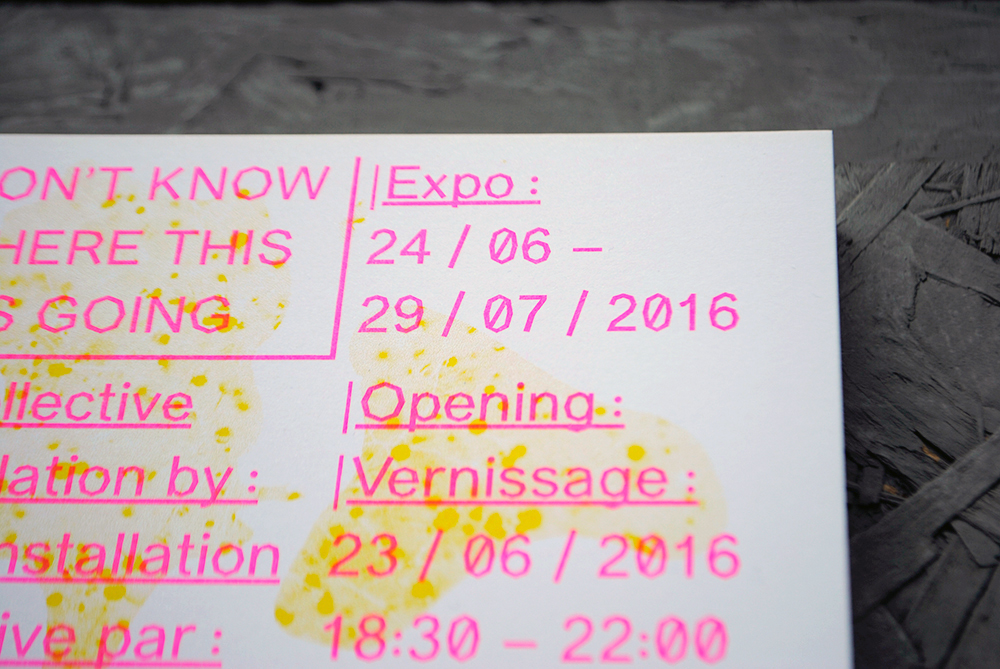 ON'T KNOW
HERE THIS
S GOING
llective
lation by :
nstallation
ive par :
|Expo :
24 / 06 –
29 / 07 / 2016
|Opening :
|Vernissage :
23 / 06 / 2016
18:30 – 22:00